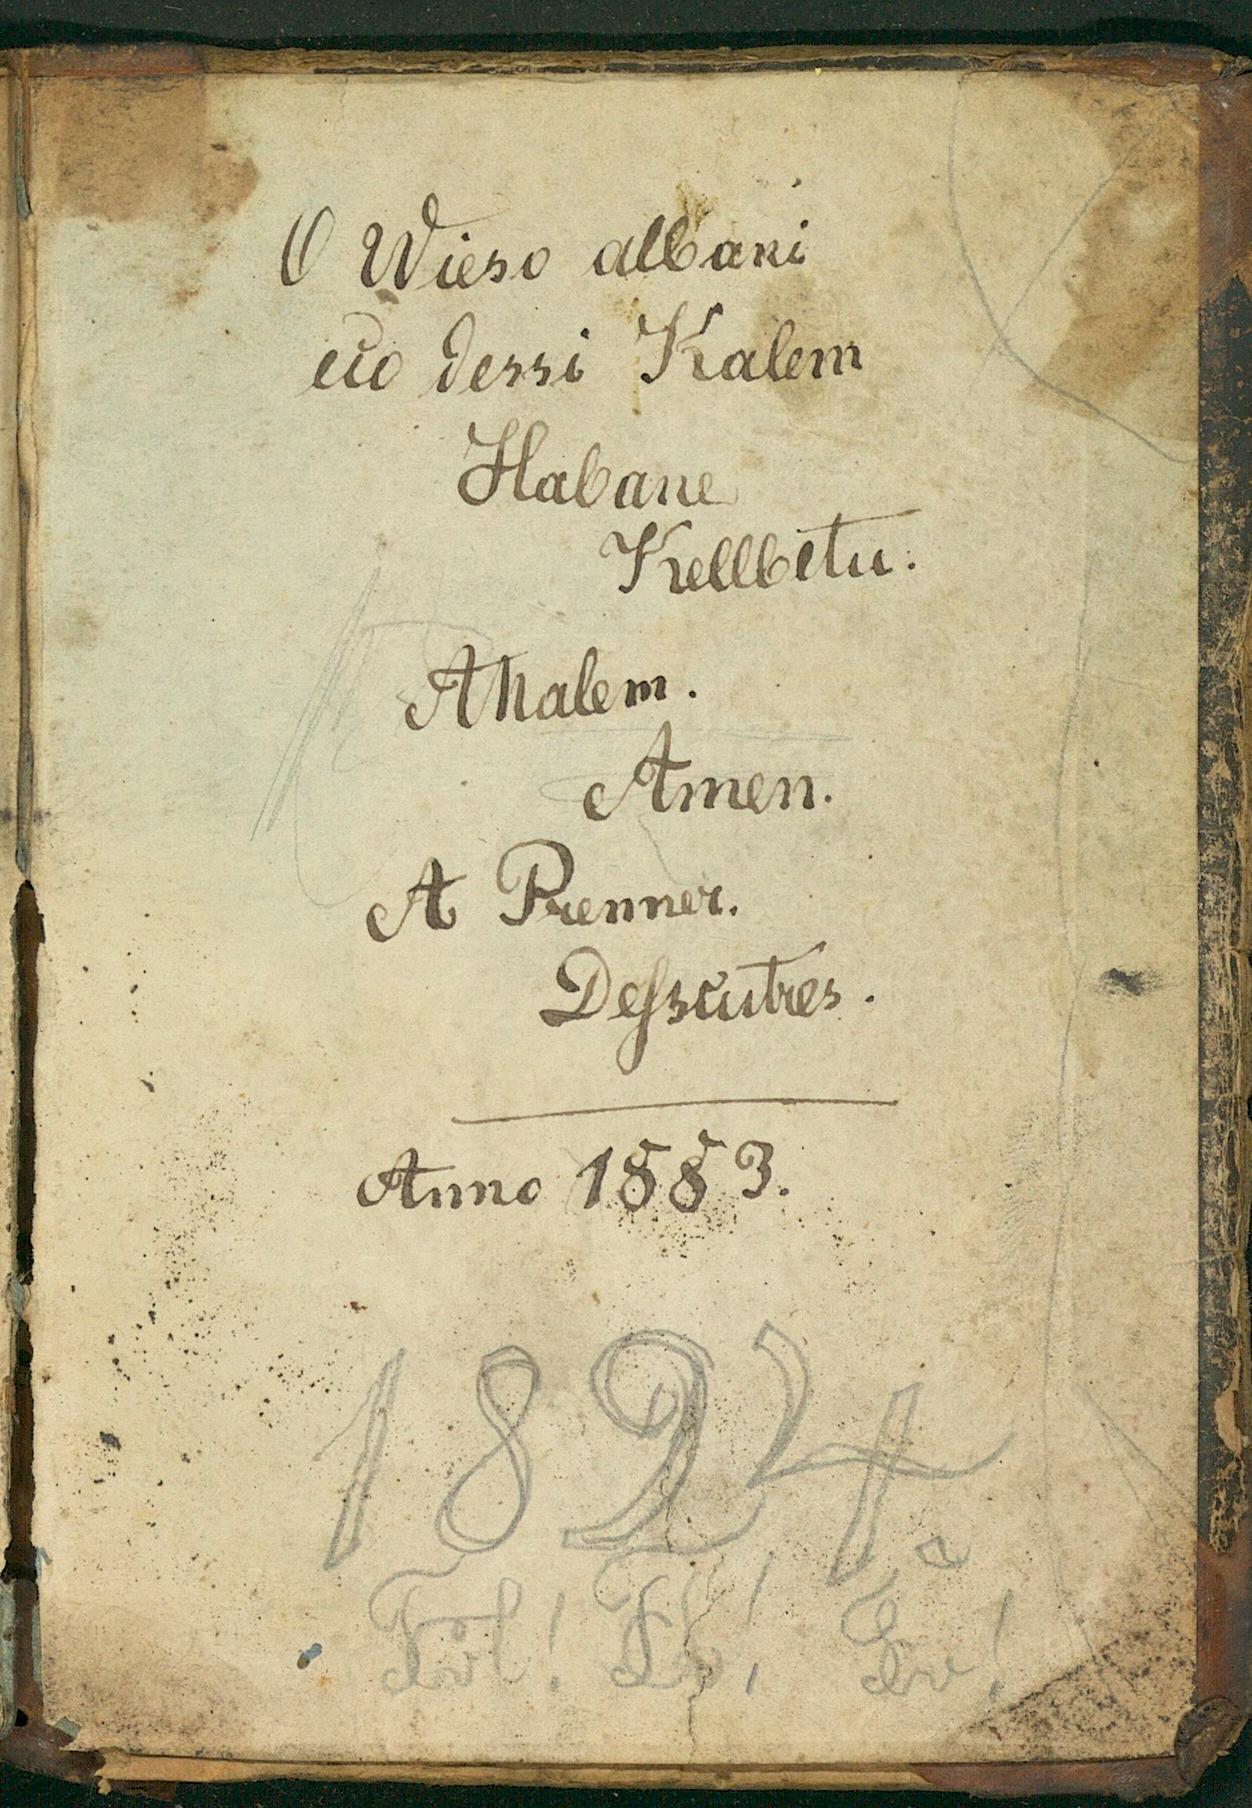 O Wieso albani
eio dessi Kalem
Habane
Kellbetu.
Ahalem.
Amen.
A Prenner.
Desscutres.
Anno 1883.
1894.